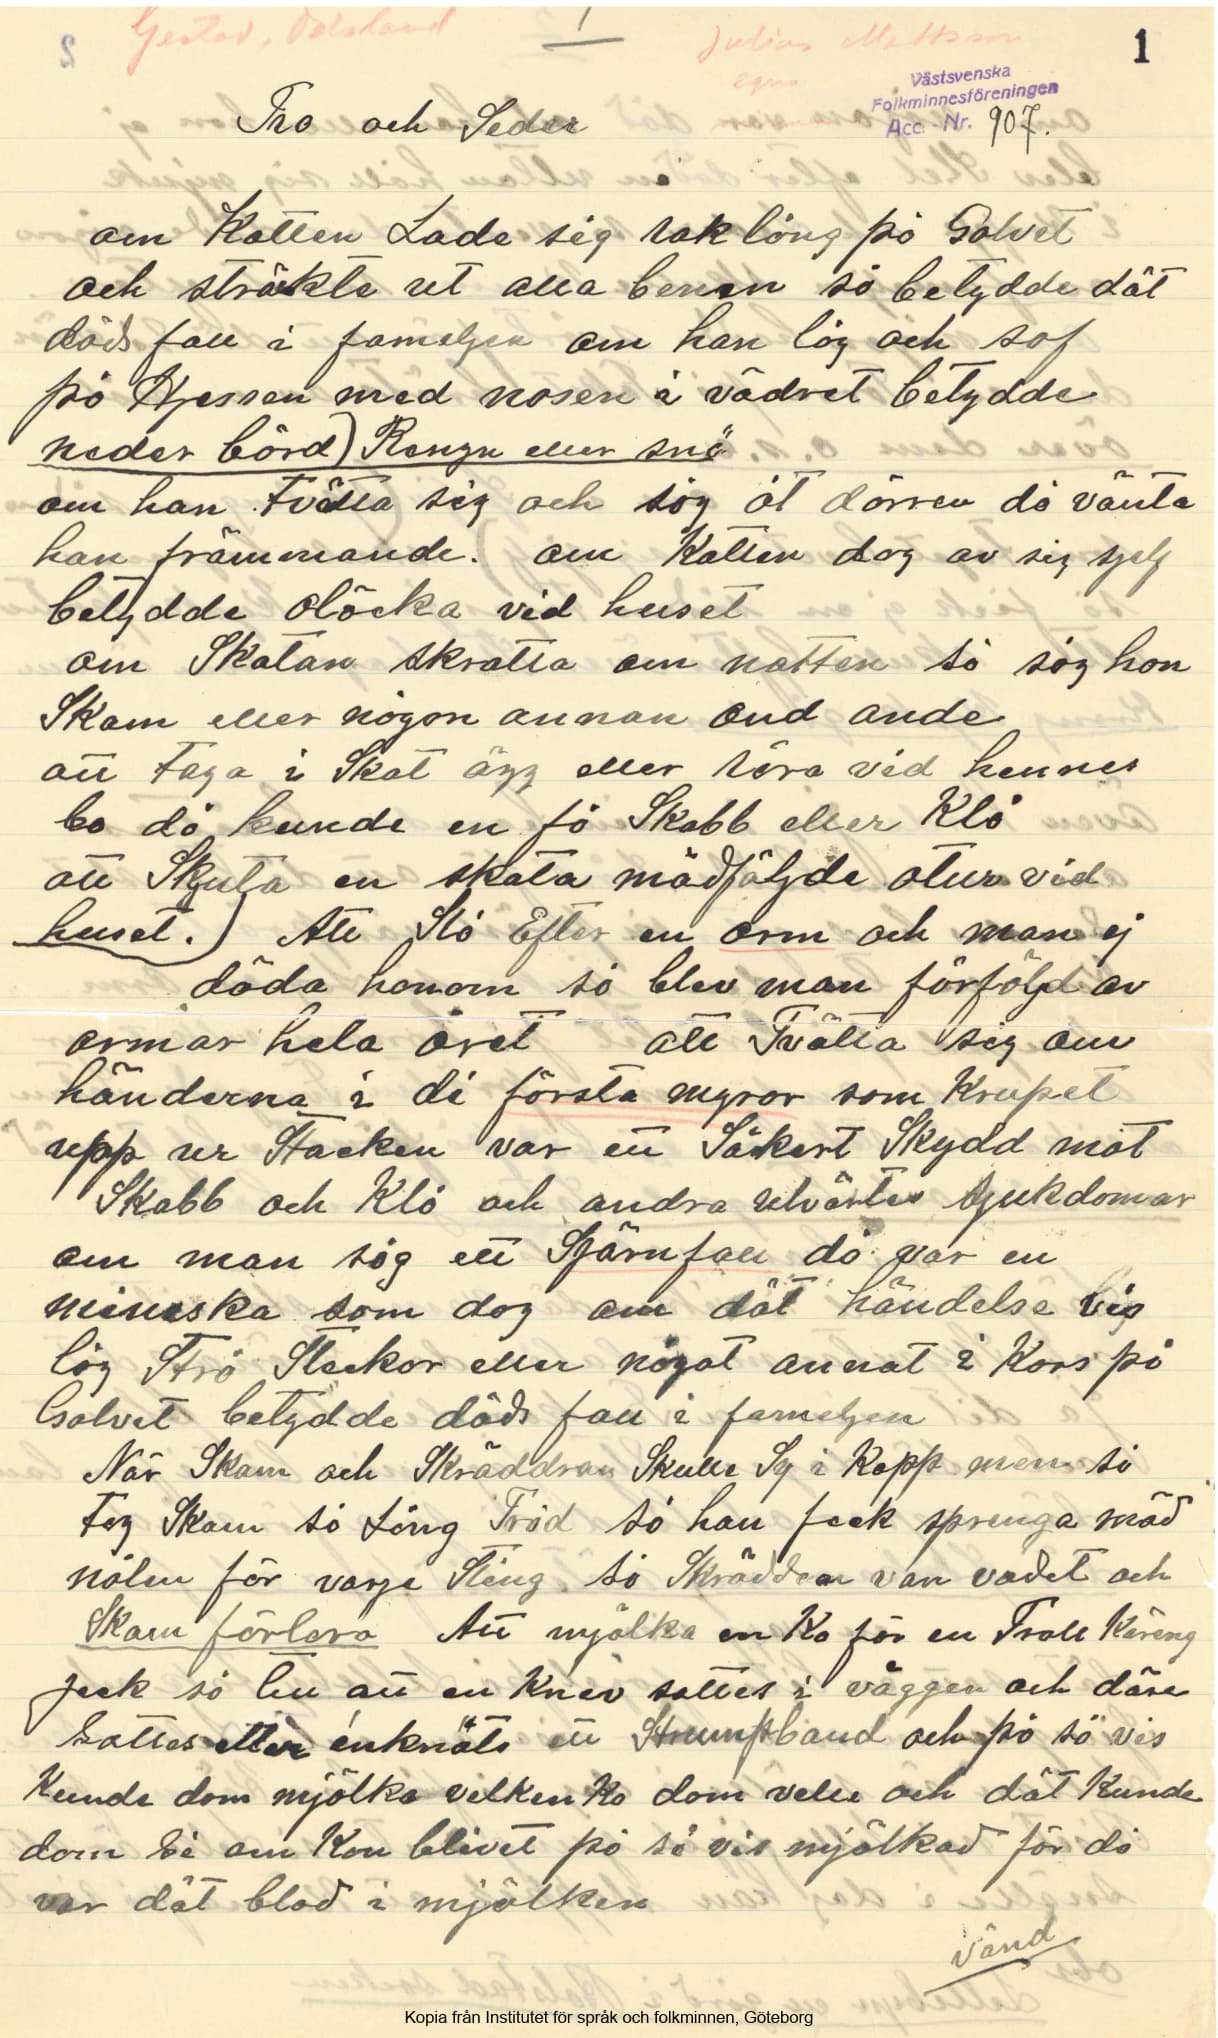 Gestad, Dalsland
1
Julius Mattsson
egna
1
Västsvenska
Folkminnesföreningen
Acc. Nr. 907.
Tro och Seder
om Katten Lade sig rak lång på Golvet
och sträkte ut alla benen så betydde dät
döds fall i fameljen om han låg och sof
på Hjessen med nosen i vädret betydde
neder börd) Rengn eller snö
om han tvätta sig och såg åt dörren då vänta
han främmande. om Katten dog av sig sjelf
betydde olöcka vid huset
om Skatan skratta om natten så såg hon
Skam eller någon annan ond ande
att taga i Skat ägg eller röra vid hennes
bo då kunde en få Skabb eller Klå
att Skjuta en skata mädföljde otur vid
huset.) Att Slå Efter en orm och man ej
döda honom så blev man förföljd av
ormar hela året att Tvätta sig om
händerna i di första myror som Krupet
upp ur Stacken var ett Säkert Skydd mot
Skabb och Klå och andra utvärtes sjukdomar
om man såg ett Sjärnfall då var en
mineska som dog om dät händelse vis
låg Strå Steckor eller något annat i Kors på
Golvet betydde döds fall i fameljen
När Skam och Skräddran Skulle Sy i Kapp men så
tog Skam så Lång Tråd så han feck sprenga mäd
nålen för varje Steng så Skräddaren van vadet och
Skam förlora Att mjölka en Ko för en Troll Käreng
feck så till att en Kniv sattes i väggen och däre
sattes eller enknöts ett Strumpband och på så vis
Kunde dom mjölka velken Ko dom velle och dät Kunde
dom Se om Kon blivet på så vis mjölkad för då
var dät blod i mjölken
vänd
Kopia från Institutet för språk och folkminnen, Göteborg